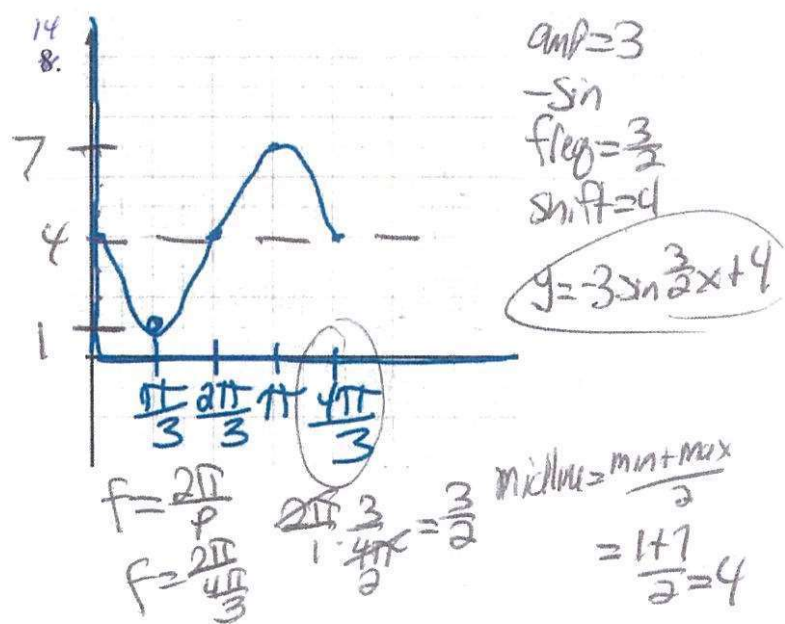 14
8.
7
4
1
π/3 2π/3 π 4π/3
amp=3
-sin
freq=3/2
shift=4
y=-3sin 3/2 x+4
f=2π/P
f=2π/(4π/3)
2π/1 · 3/4π = 3/2
2
midline=min+max/2
=1+7/2=4